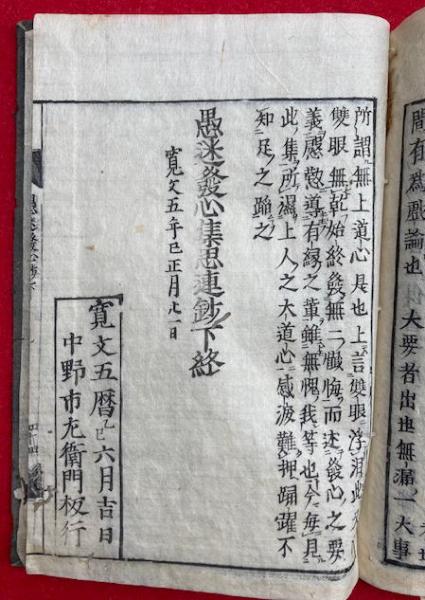 間有為戯論也 大要者出也無漏一大事
所謂無上道心是也上言雙眼浮涙此
雙眼無乾始終發無二懺悔而述發心之要
義慇懃導有縁之輩雖無愧我等也今毎見
此集所謂上人之大道心感涙難押踊躍不
知足之蹈之
愚迷發心集思連鈔下終
寛文五年巳正月廿一日
寛文五暦乙巳六月吉日
中野市左衛門板行
愚迷發心集下